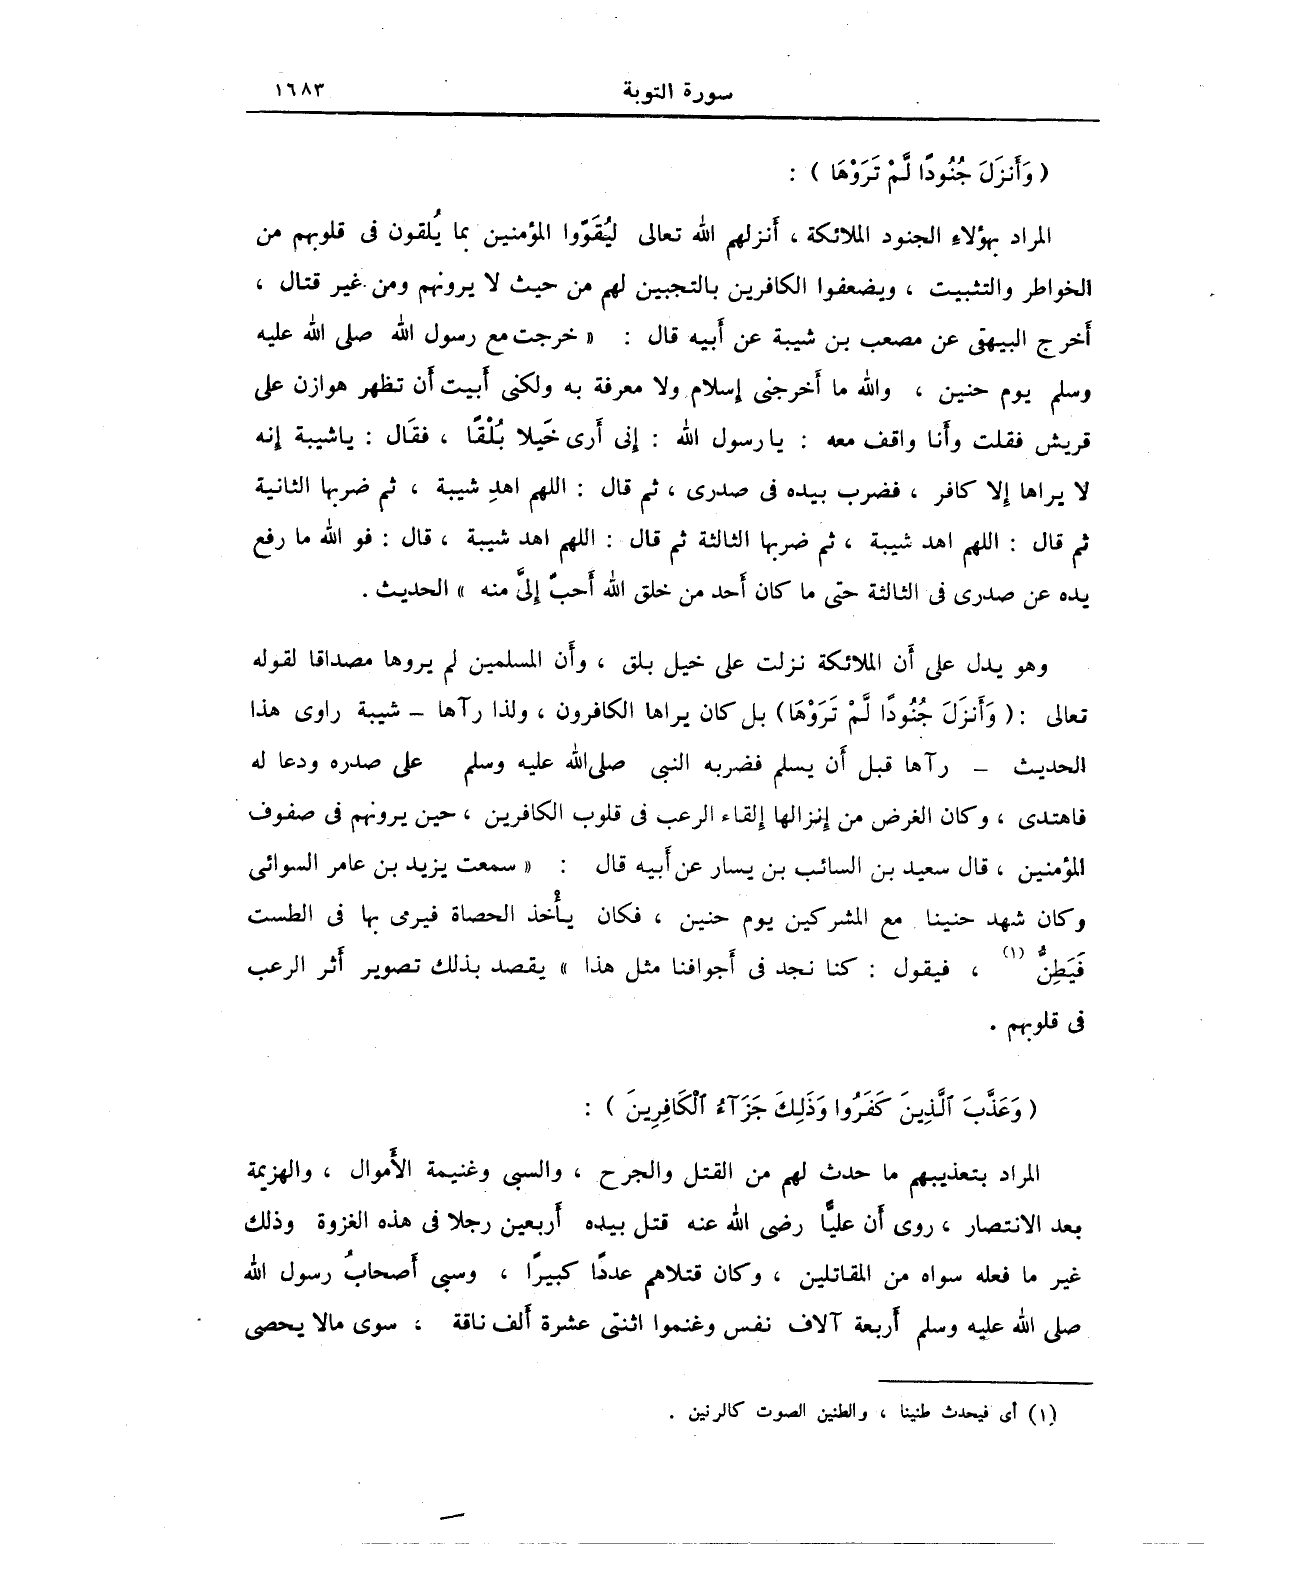 سورة التوبة ١٦٨٣
( وَأَنزَلَ جُنُودًا لَّمْ تَرَوْهَا ) :
المراد بهؤلاء الجنود الملائكة ، أنزلهم الله تعالى ليُقَوّوا المؤمنين بما يُلقون فى قلوبهم من
الخواطر والتثبيت ، ويضعفوا الكافرين بالتجبين لهم من حيث لا يرونهم ومن غير قتال ،
أخرج البيهقى عن مصعب بن شيبة عن أبيه قال : « خرجت مع رسول الله صلى الله عليه
وسلم يوم حنين ، والله ما أخرجنى إسلام ولا معرفة به ولكنى أبيت أن تظهر هوازن على
قريش فقلت وأنا واقف معه : يا رسول الله : إنى أرى خَيلا بُلْقًا ، فقَال : ياشيبة إنه
لا يراها إلا كافر ، فضرب بيده فى صدرى ، ثم قال : اللهم اهدِ شيبة ، ثم ضربها الثانية
ثم قال : اللهم اهد شيبة ، ثم ضربها الثالثة ثم قال : اللهم اهد شيبة ، قال : فو الله ما رفع
يده عن صدرى فى الثالثة حتى ما كان أحد من خلق الله أحبّ إلىَّ منه » الحديث .
وهو يدل على أن الملائكة نزلت على خيل بلق ، وأن المسلمين لم يروها مصداقا لقوله
تعالى : ( وَأَنزَلَ جُنُودًا لَّمْ تَرَوْهَا ) بل كان يراها الكافرون ، ولذا رآها – شيبة راوى هذا
الحديث – رآها قبل أن يسلم فضربه النبى صلى الله عليه وسلم على صدره ودعا له
فاهتدى ، وكان الغرض من إنزالها إلقاء الرعب فى قلوب الكافرين ، حين يرونهم فى صفوف
المؤمنين ، قال سعيد بن السائب بن يسار عن أبيه قال : « سمعت يزيد بن عامر السوائى
وكان شهد حنينا مع المشركين يوم حنين ، فكان يأخذ الحصاة فيرمى بها فى الطست
فَيَطِنُّ (١) ، فيقول : كنا نجد فى أجوافنا مثل هذا » يقصد بذلك تصوير أثر الرعب
فى قلوبهم .
( وَعَذَّبَ ٱلَّذِينَ كَفَرُوا وَذَلِكَ جَزَآءُ ٱلْكَافِرِينَ ) :
المراد بتعذيبهم ما حدث لهم من القتل والجرح ، والسبى وغنيمة الأموال ، والهزيمة
بعد الانتصار ، روى أن عليًّا رضى الله عنه قتل بيده أربعين رجلا فى هذه الغزوة وذلك
غير ما فعله سواه من المقاتلين ، وكان قتلاهم عددًا كبيرًا ، وسبى أصحابُ رسول الله
صلى الله عليه وسلم أربعة آلاف نفس وغنموا اثنتى عشرة ألف ناقة ، سوى مالا يحصى
(١) أى فيحدث طنينا ، والطنين الصوت كالرنين .